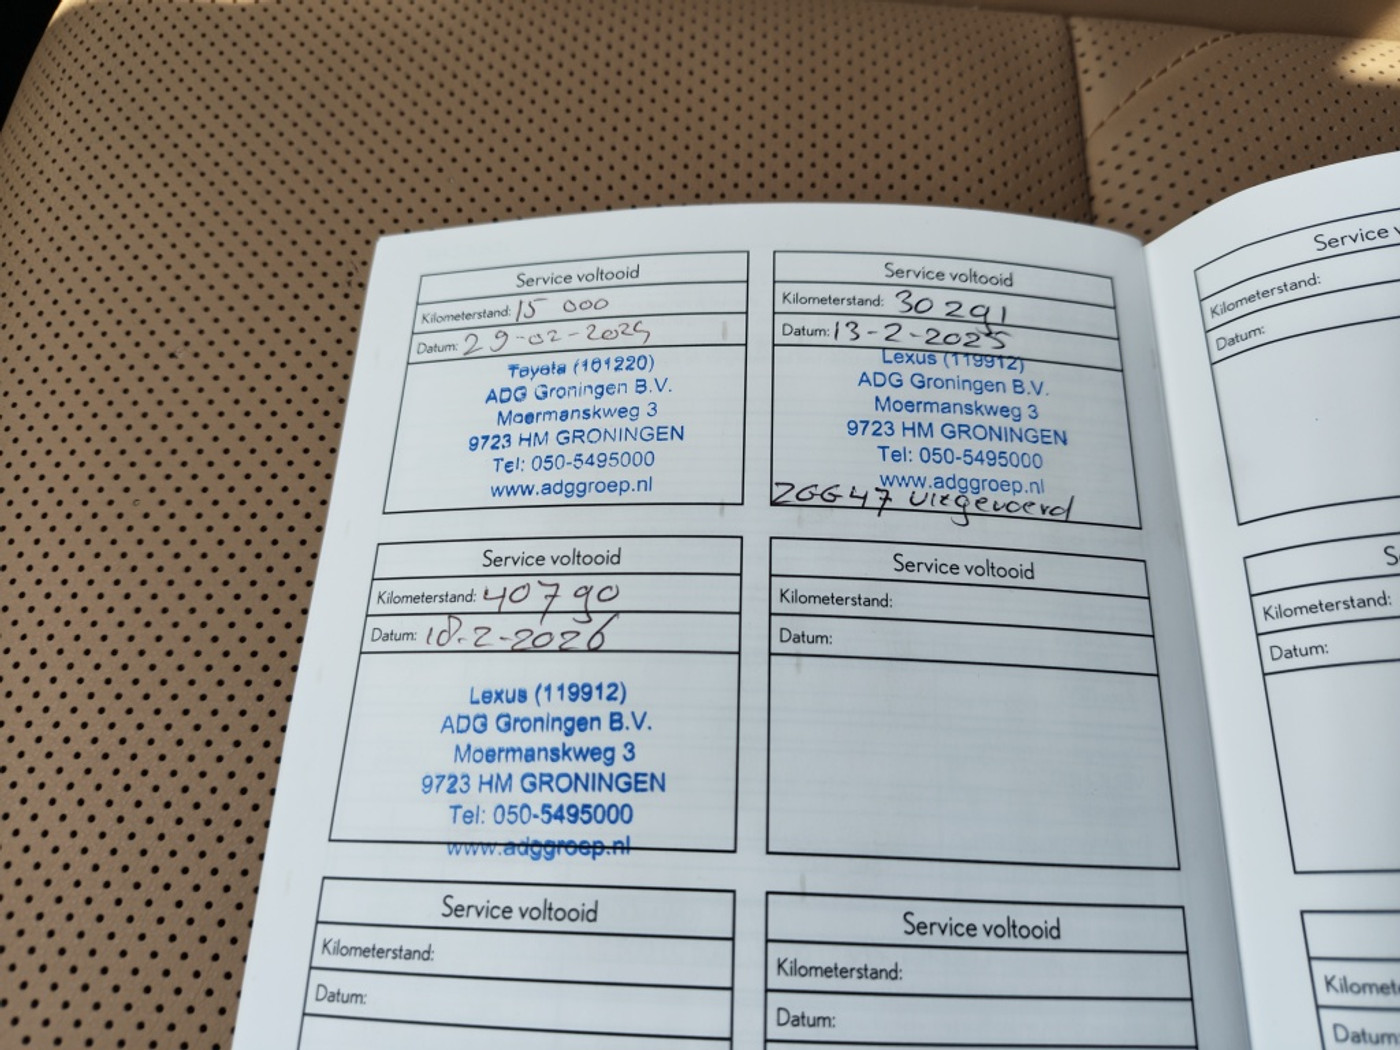 Service voltooid
Kilometerstand: 15 000
Datum: 29-02-2024
Toyota (101220)
ADG Groningen B.V.
Moermanskweg 3
9723 HM GRONINGEN
Tel: 050-5495000
www.adggroep.nl
Service voltooid
Kilometerstand: 30291
Datum: 13-2-2025
Lexus (119912)
ADG Groningen B.V.
Moermanskweg 3
9723 HM GRONINGEN
Tel: 050-5495000
www.adggroep.nl
ZGG47 uitgevoerd
Service voltooid
Kilometerstand: 40790
Datum: 18-2-2026
Lexus (119912)
ADG Groningen B.V.
Moermanskweg 3
9723 HM GRONINGEN
Tel: 050-5495000
www.adggroep.nl
Service voltooid
Kilometerstand:
Datum:
Service voltooid
Kilometerstand:
Datum:
Service voltooid
Kilometerstand:
Datum:
Service
Kilometerstand:
Datum:
Kilometerstand:
Datum:
Datum: